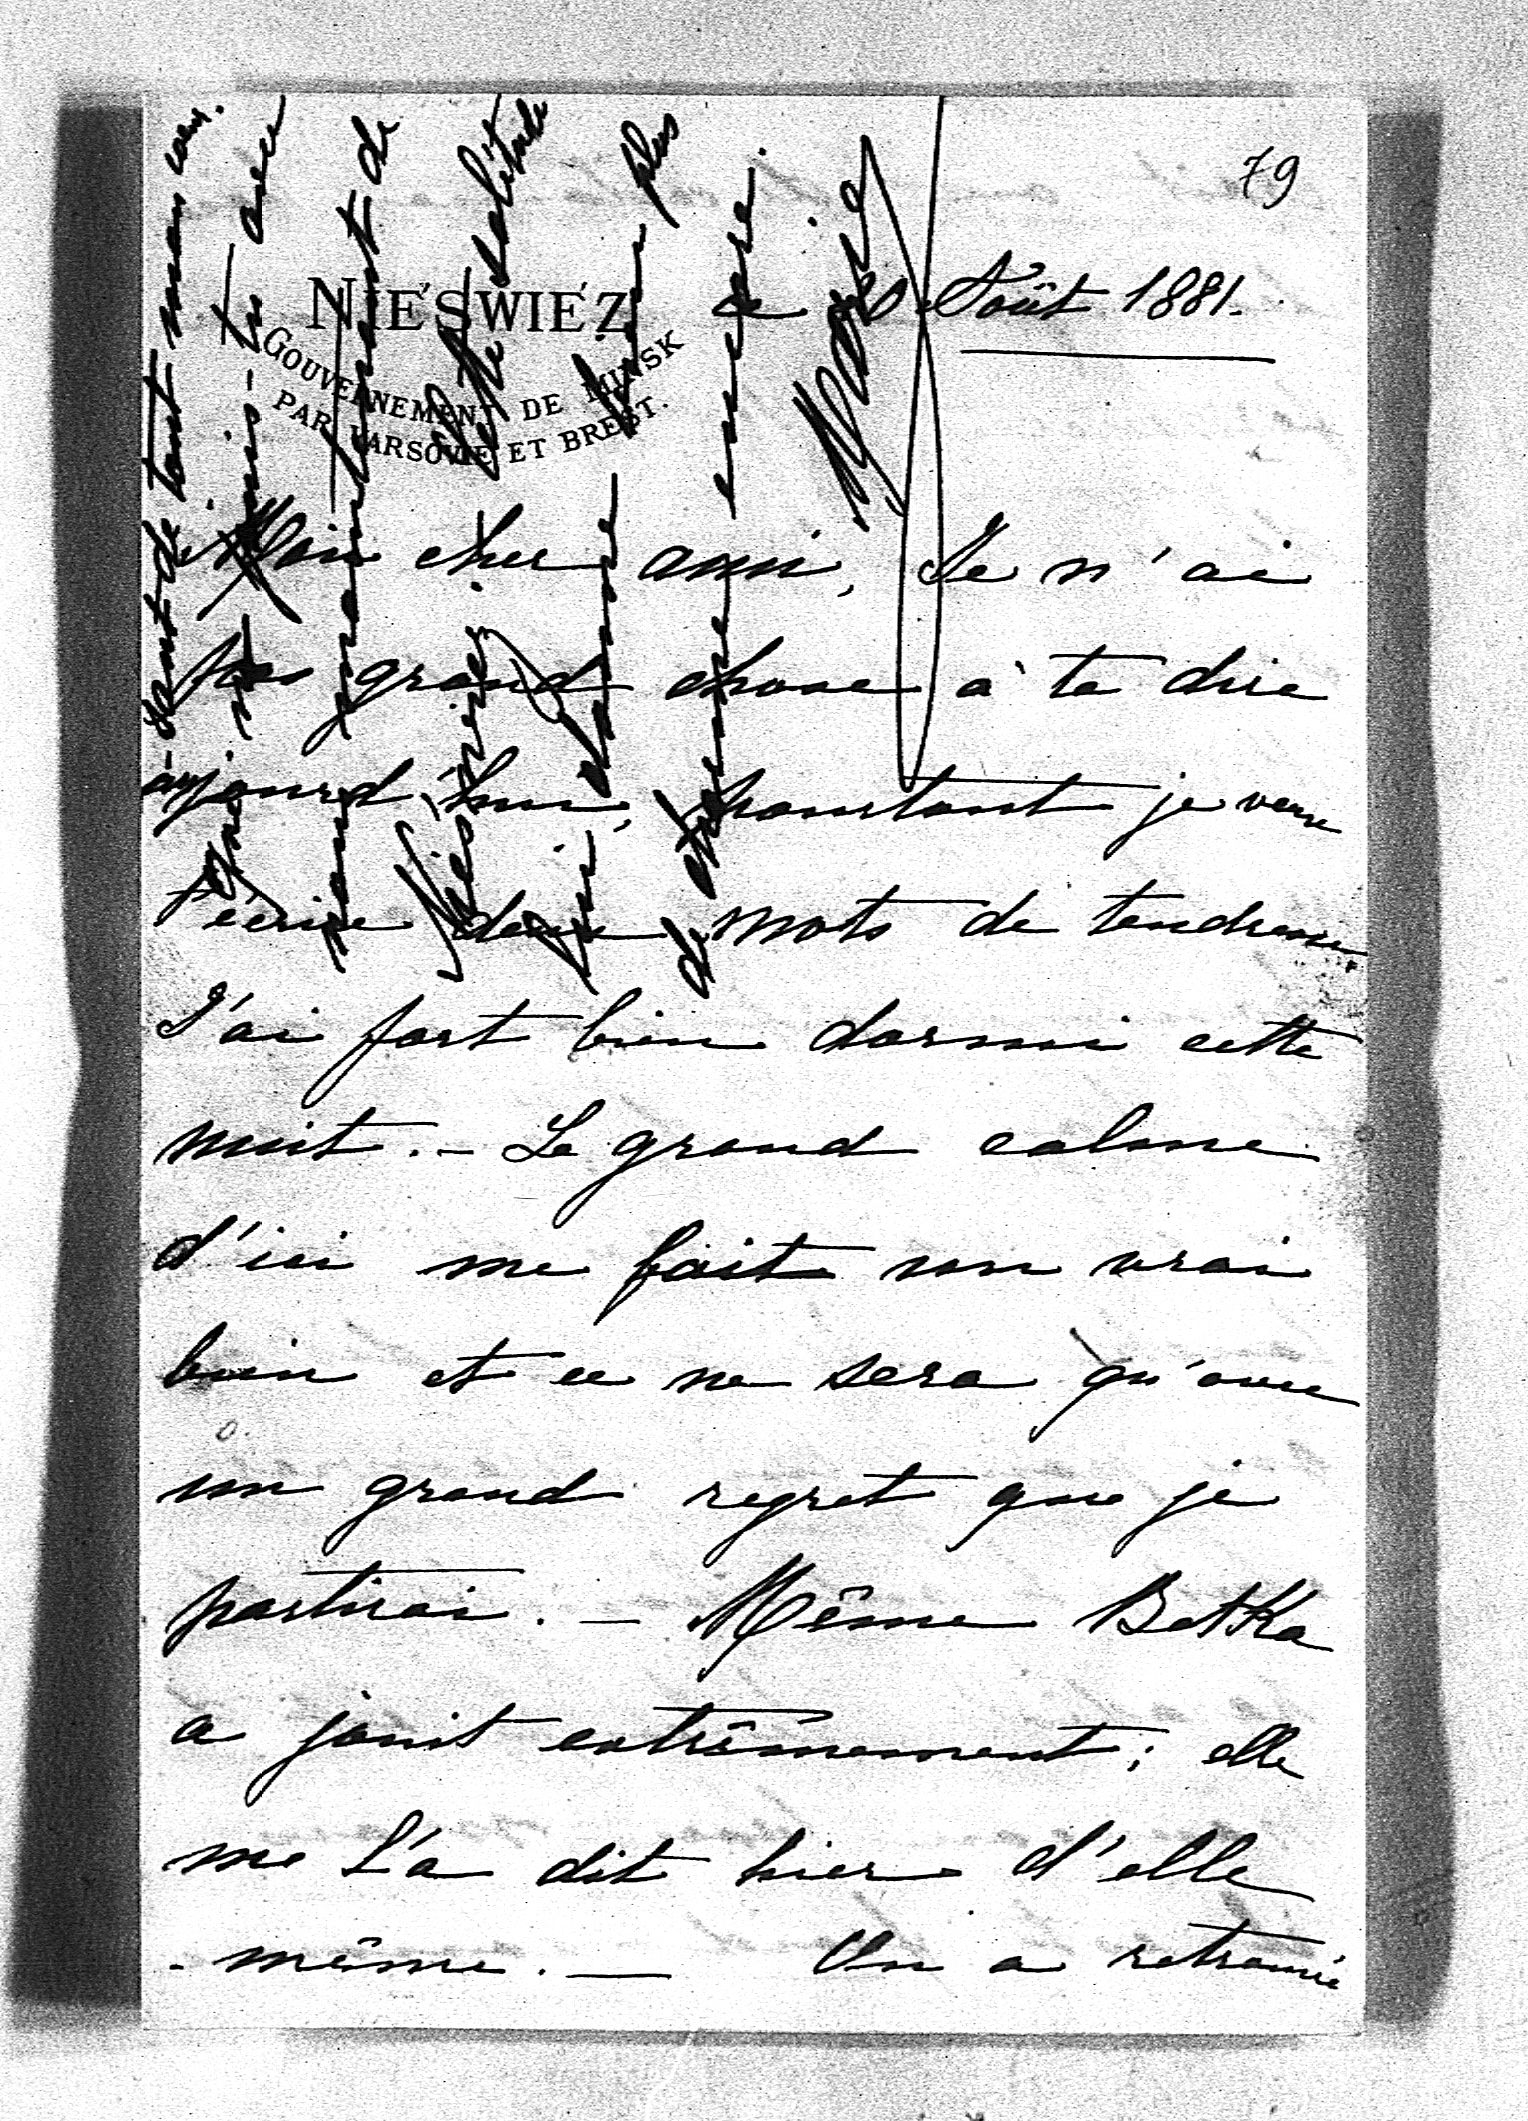 79
NIEŚWIEŻ
GOUVERNEMENT DE MINSK
PAR VARSOVIE ET BREST.
ce Août 1881.
Mon cher ami, Je n'ai
pas grand chose à te dire
aujourd'hui, pourtant je veux
t'écrire deux mots de tendresse.
J'ai fort bien dormi cette
nuit. – Le grand calme
d'ici me fait un vrai
bien et ce ne sera qu'avec
un grand regret que je
partirai. – Même Betka
a jouit extrêmement; elle
me l'a dit hier d'elle
-même. — On a retrouvé
de tout mon cœur.
avec
de
Nieswiez.
plus
de encore.
Marie